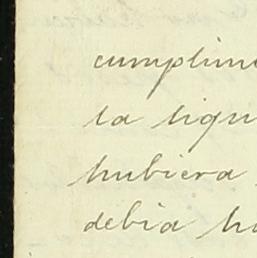 cumplim
la liqu
hubiera
debia ha